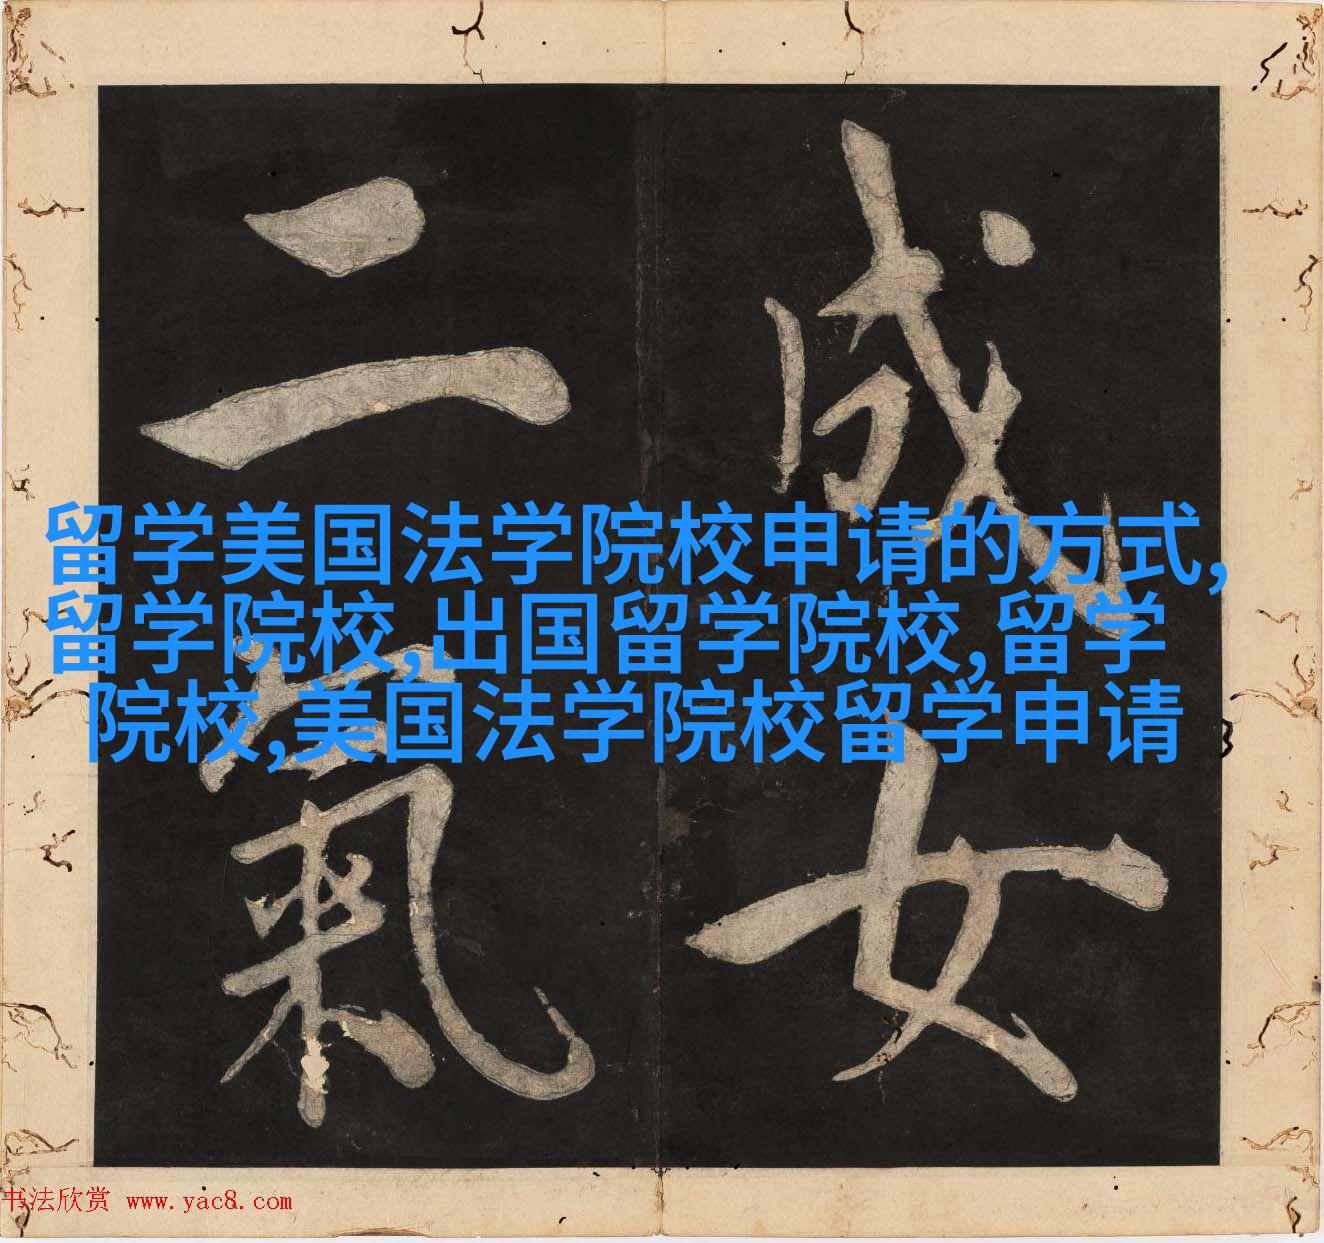 成女
二氣
留学美国法学院校申请的方式,
留学院校,出国留学院校,留学
院校,美国法学院校留学申请
书法欣赏 www.yac8.com